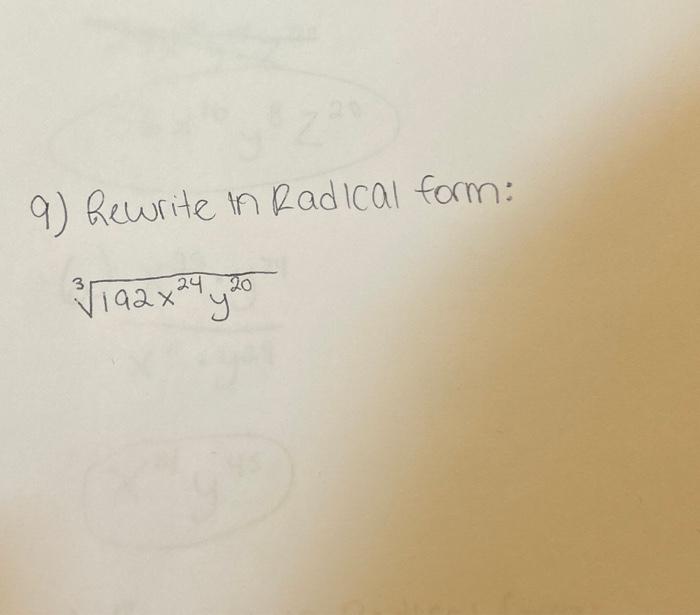 9) Rewrite in Radical form:
∛192x²⁴y²⁰